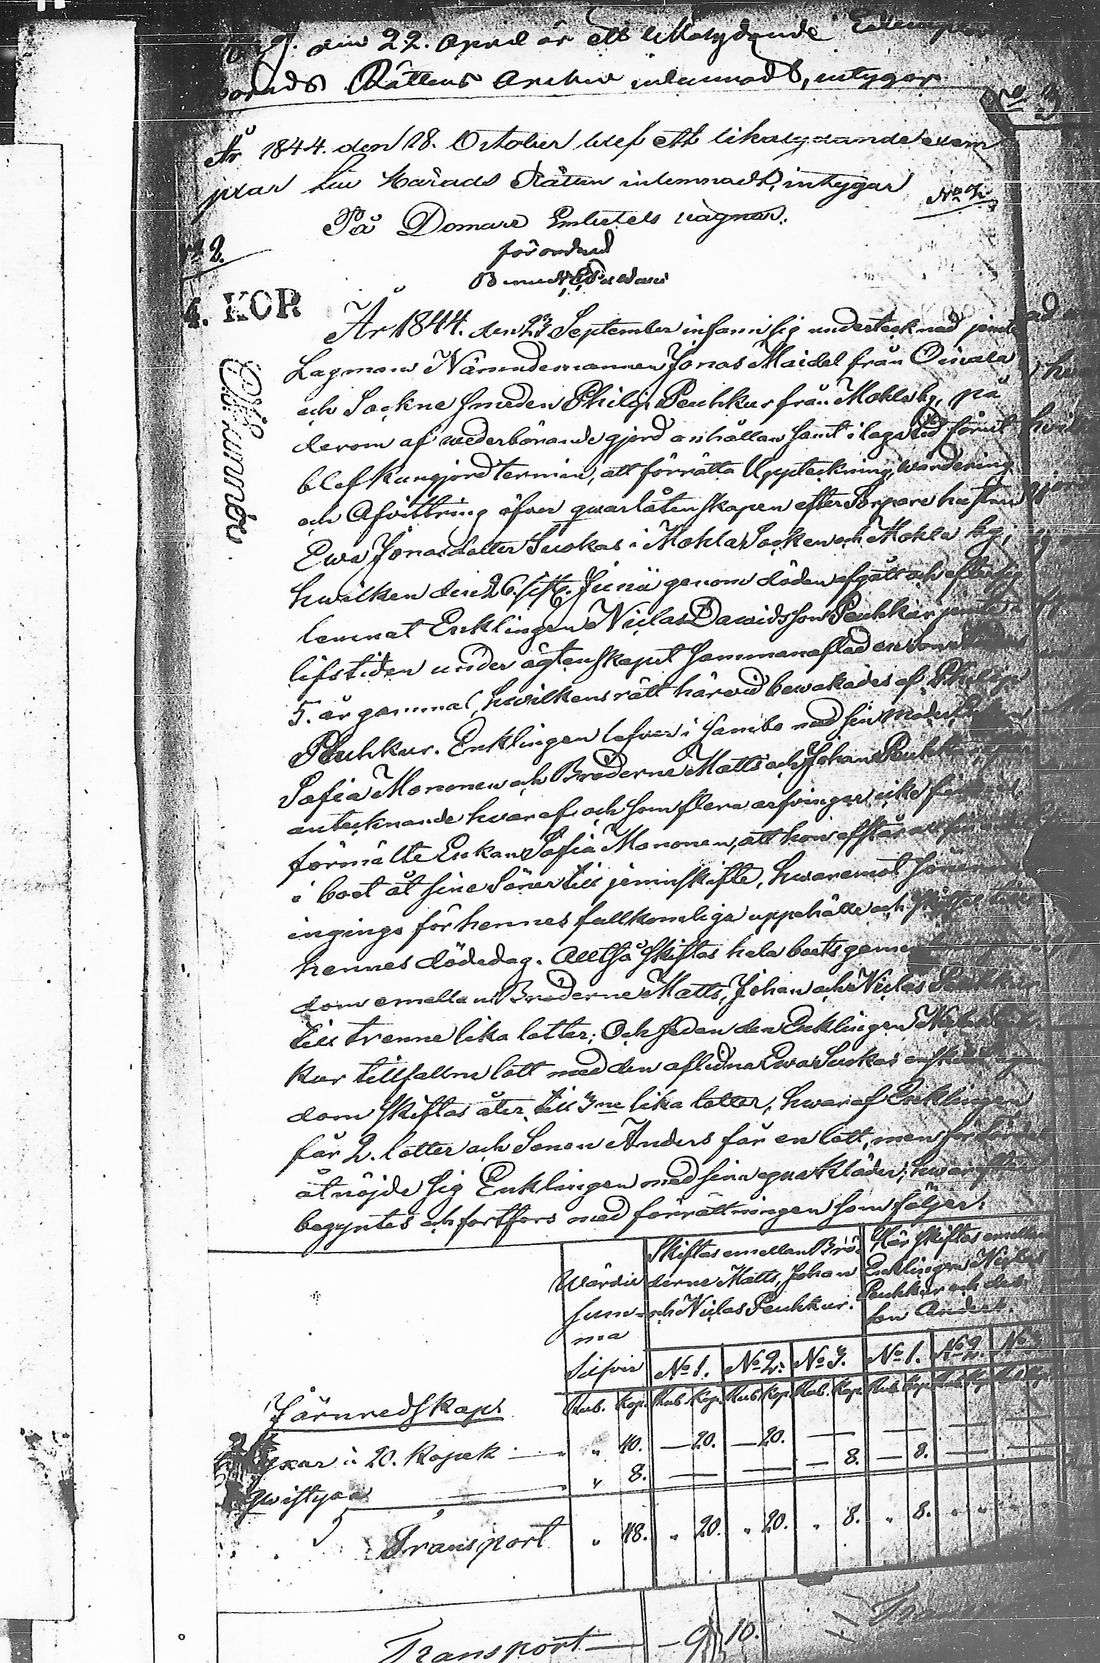 den 22. April är ett likalydande Exemplar
Rättens Archiv inlemnadt, intygar
År 1844. den 18. October blef ett likalydande exem
plar till Härads Rätten inlemnadt, intygar
No 2.
På Domare Embetets vägnar.
förordnad
4. KOR
År 1844. den 23 September infann sig undertecknad jemte
Lagmans Nämndemannen Jonas Maidel från Oinala
och Sockne smeden Philip Peuhkur från Mohla by, på
derom af wederbörande gjord anhållan samt i laga tid förut
blef kungjord termin, att förrätta Uppteckning, Wärdering
och Afvittring öfver qwarlåtenskapen efter Torpare hustrun
Ewa Jonasdotter Suokas i Mohla Socken och Mohla by,
hwilken den 26. sistl. Junii genom döden afgått och efter
lemnat Enklingen Niclas Davidsson Peuhkur jemte i
lifstiden under ägtenskapet sammanaflad en son
5. år gammal, hwilkens rätt härvid bewakades af Philip
Peuhkur. Enklingen lefver i sambo med sin moder Enkan
Sofia Mononen och Bröderne Matts och Johan Peuhkur,
antecknande hwaraf och som flera arfvingar icke
förmälte Enkan Sofia Mononen, att hon afstår
i boet åt sine Söner till jemnskifte, hwaremot Sönerne
ingingo för hennes fullkomliga uppehälle och skötsel till
hennes dödedag. Alltså skiftas hela boets
dom emellan Bröderne Matts, Johan och Niclas Peuhkur
till trenne lika lotter; Och sedan den Enklingen Niclas Peuh
kur tillfallne lott med den aflidna Ewa Suokas enskilda egen
dom skiftas åter till 3ne lika lotter, hwaraf Enklingen
får 2. lotter och Sonen Anders får en lott, men förledes
åtnöjde sig Enklingen med sina egna kläder; hwarefter
begyntes och fortfors med förrättningen som följer:
Wärdie Summa Silfver
Skiftas emellan Brö-
derne Matts, Johan
och Niclas Peuhkur.
Här skiftas emellan
Enklingen Niclas
Peuhkur och dess
son Anders.
No 1. No 2. No 3. No 1. No 2. No 3.
Rub. Kop. Rub. Kop. Rub. Kop. Rub. Kop. Rub. Kop. Rub. Kop.
Järnredskap
yxar à 20. Kopek — " 40. — 20. — 20. — — —
Qwistyxa — " 8. — — — 8. — 8. —
Transport " 48. " 20. " 20. " 8. " 8. " "
Transport — 9 10.